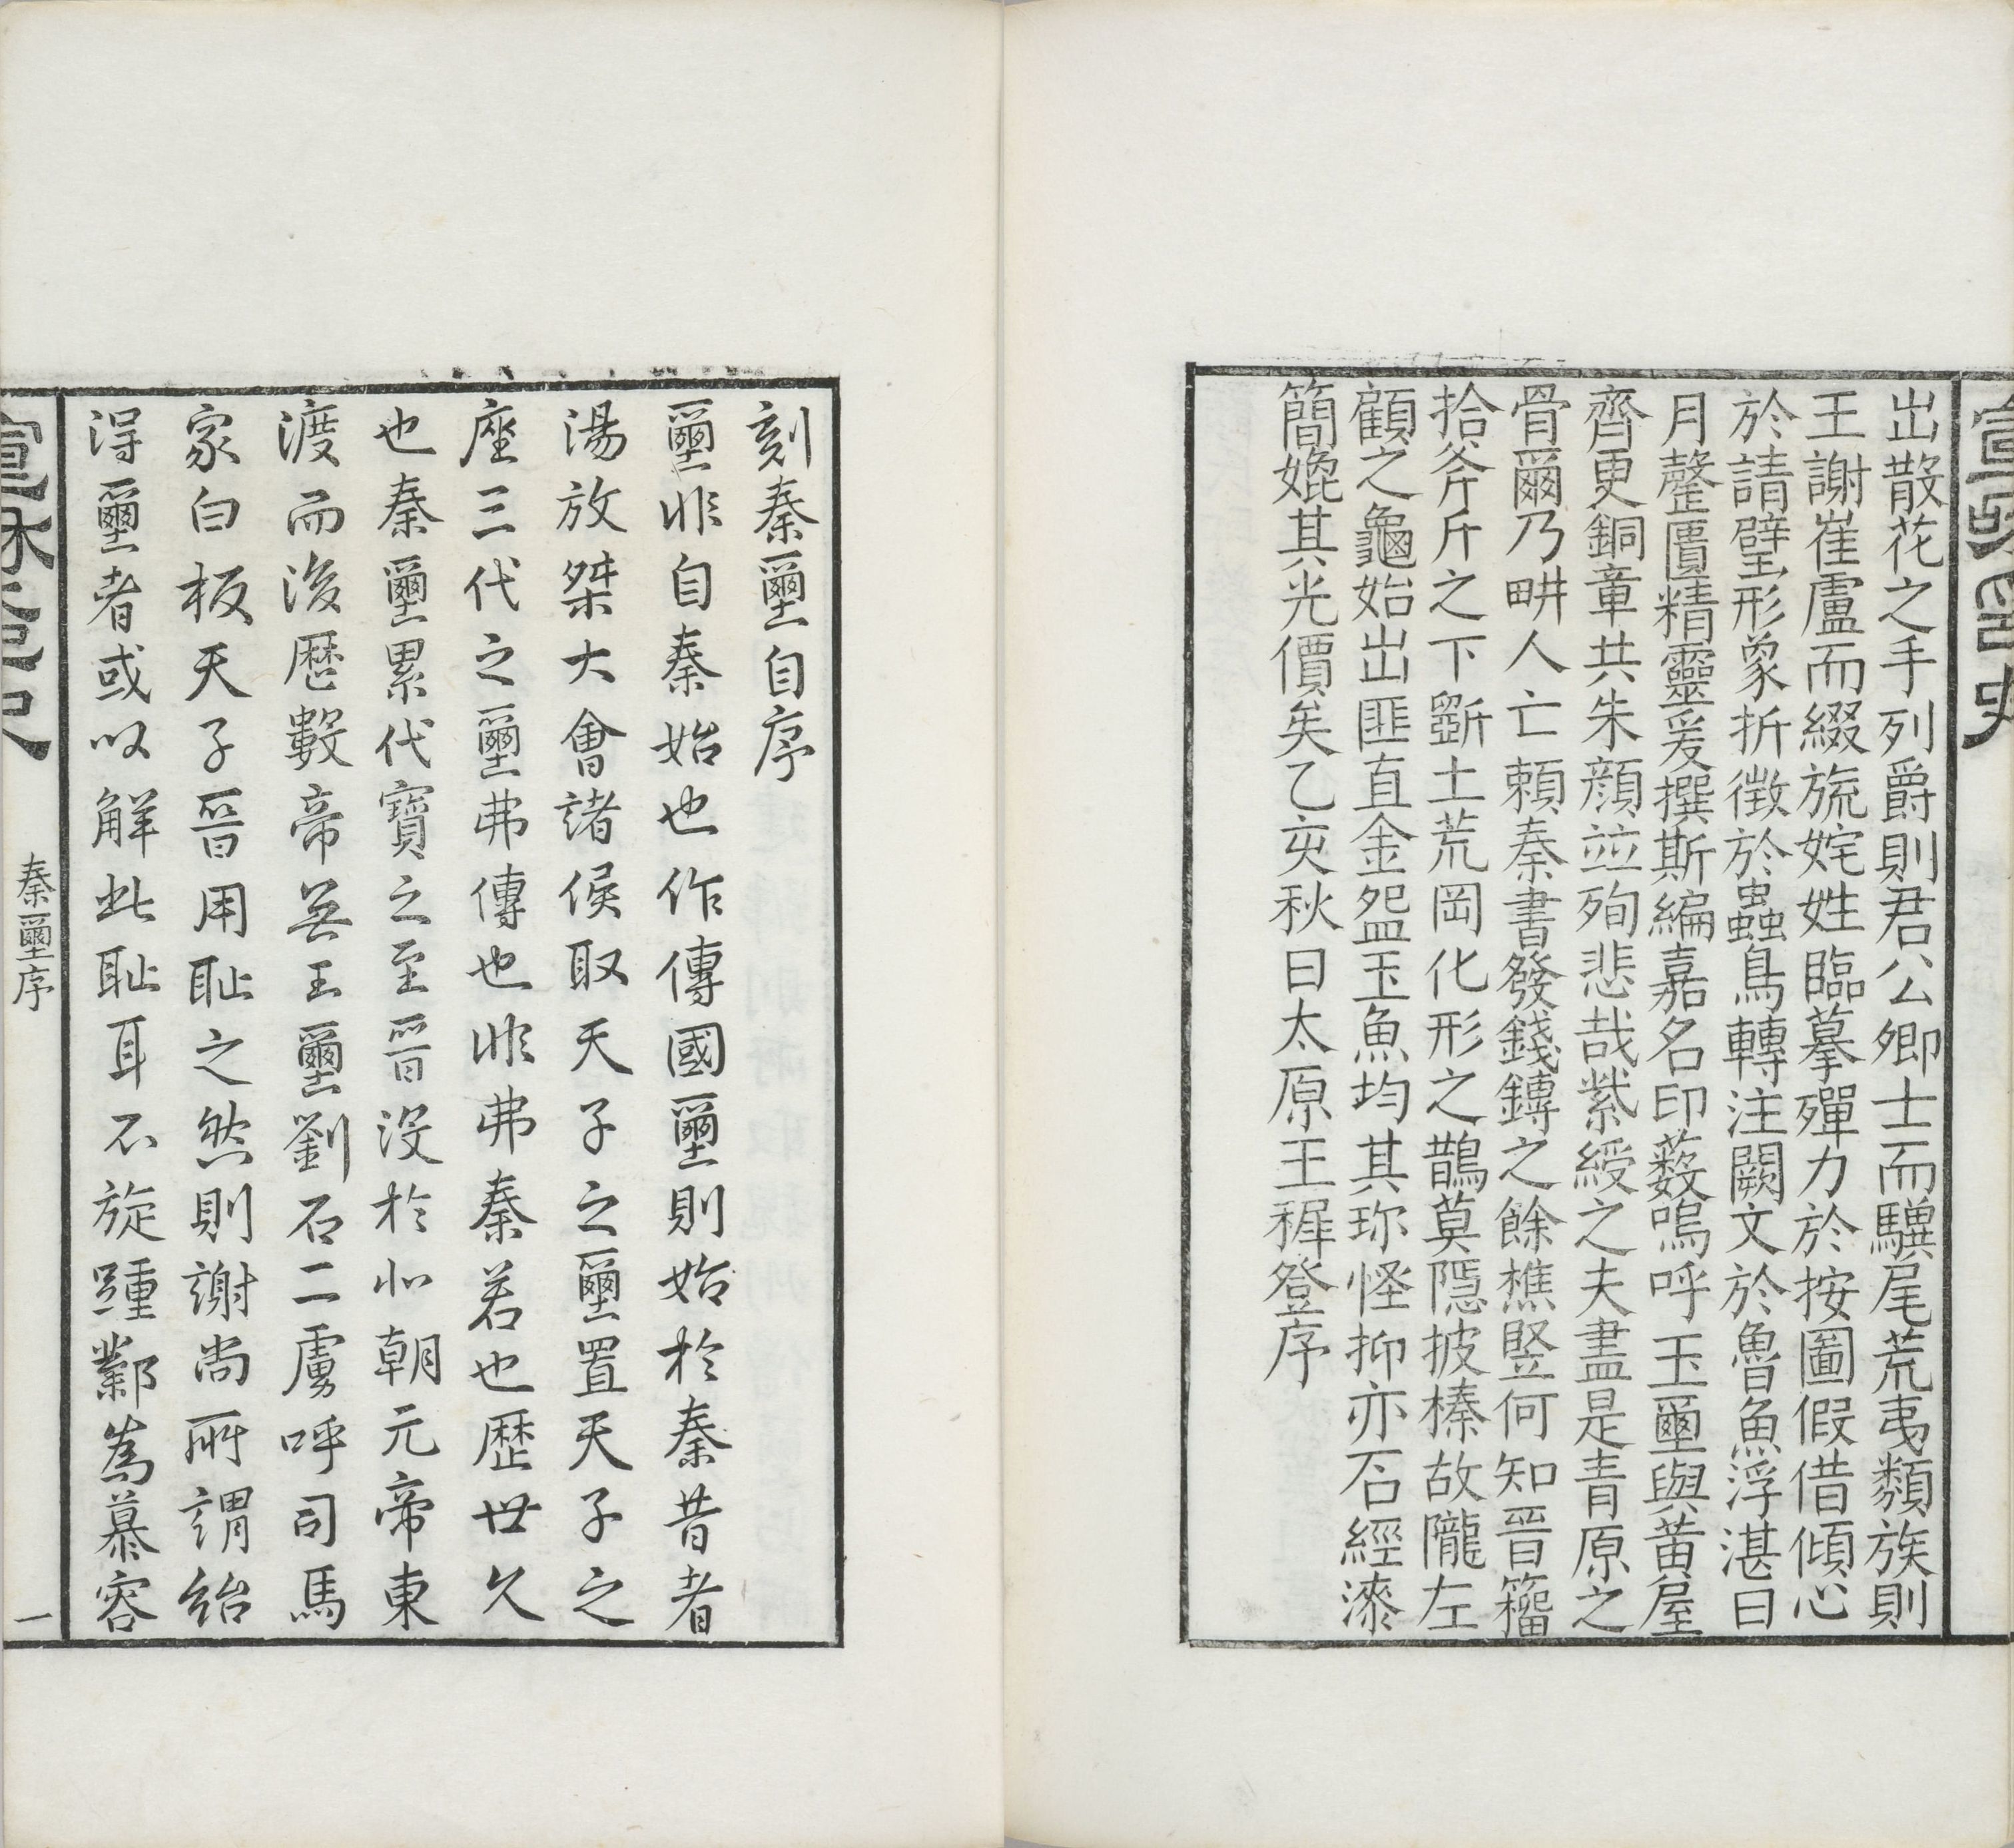 出散花之手列爵則君公卿士而驥尾荒夷類族則
王謝崔盧而綴旒姹姓臨摹殫力於按圖假借傾心
於請璧形象折徵於蟲鳥轉注闕文於魯魚浮湛日
月鏧匱精靈爰撰斯編嘉名印藪嗚呼玉璽與黃屋
齊更銅章共朱顔竝殉悲哉紫綬之夫盡是青原之
骨爾乃畊人亡賴秦書發錢鏄之餘樵豎何知晉籀
拾斧斤之下斸土荒岡化形之鵲莫隱披榛故隴左
顧之龜始出匪直金盌玉魚均其珎怪抑亦石經漆
簡媲其光價矣乙亥秋日太原王穉登序
刻秦璽自序
璽非自秦始也作傳國璽則始於秦昔者
湯放桀大會諸侯取天子之璽置天子之
座三代之璽弗傳也非弗秦若也歷世久
也秦璽累代寶之至晉没於北朝元帝東
渡而後歷數帝無玉璽劉石二虜呼司馬
家白板天子晉用恥之然則謝尚所謂紿
得璽者或以解此恥耳不旋踵鄴為慕容
秦璽序
一